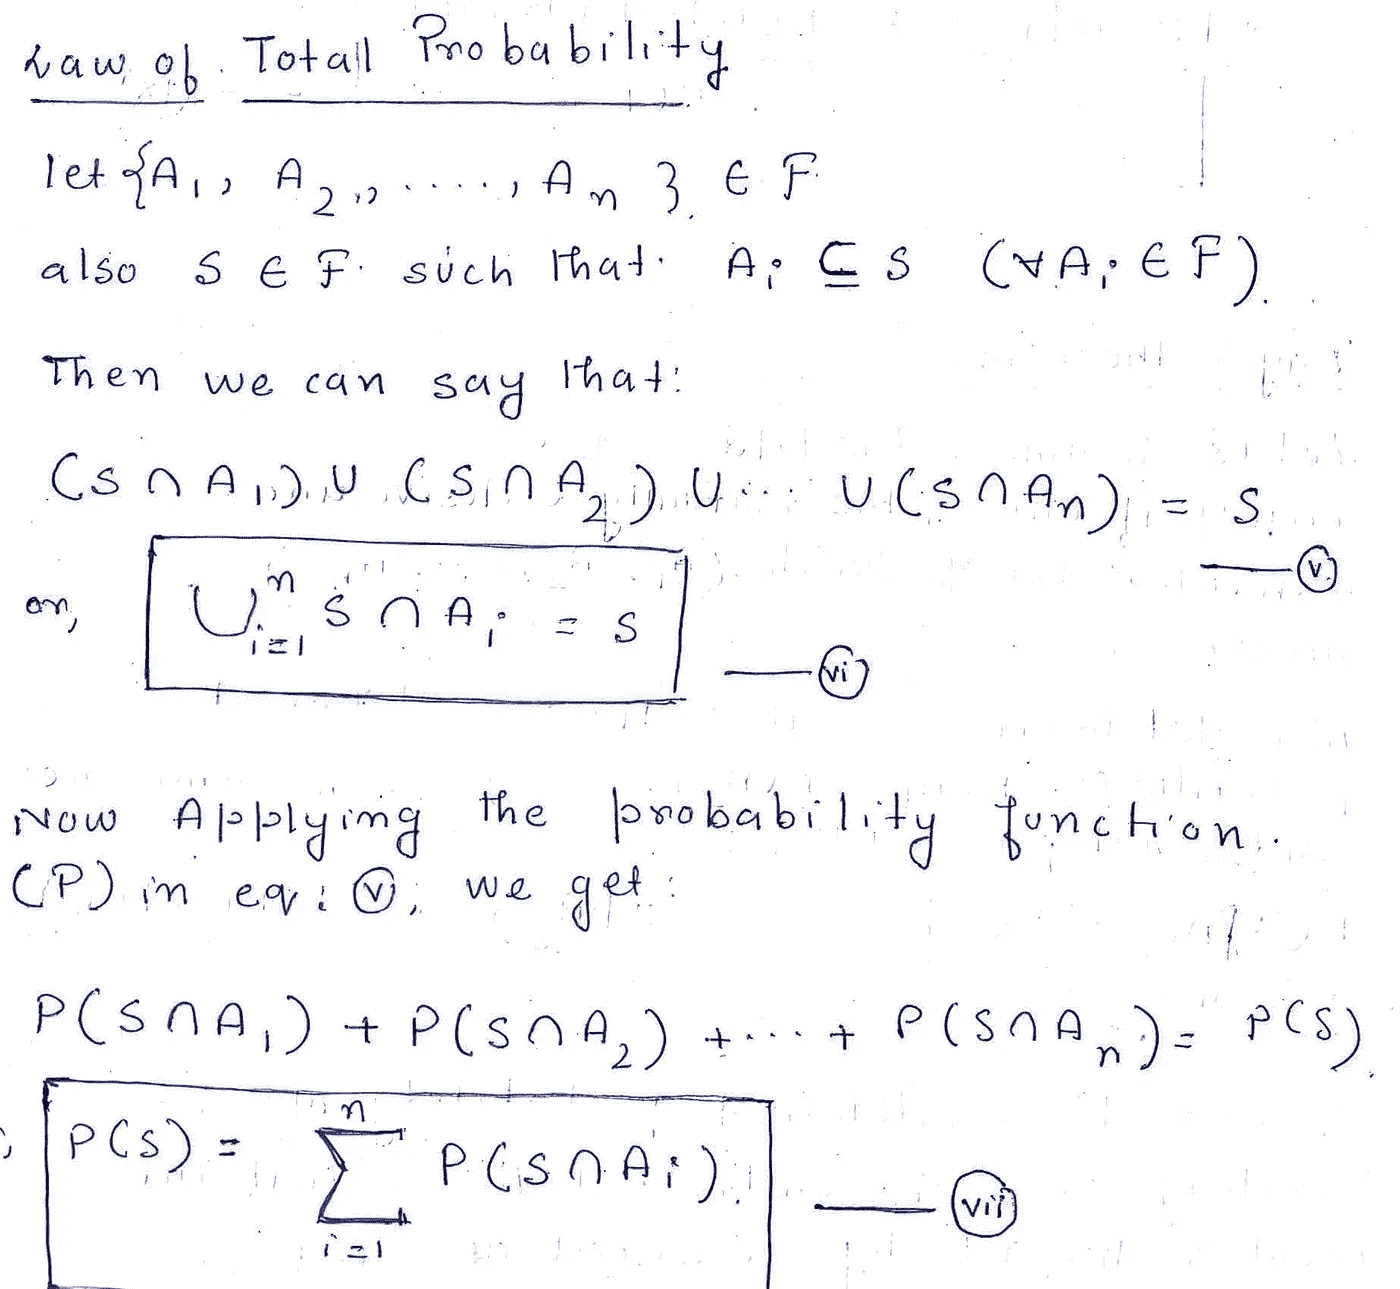 Law of Total Probability
let {A₁, A₂,, ...., Aₙ } ∈ F
also S ∈ F. such that. Aᵢ ⊆ S (∀ Aᵢ ∈ F).
Then we can say that:
(S ∩ A₁) ∪ (S ∩ A₂) ∪ ... ∪ (S ∩ Aₙ) = S
— (v)
or, ⋃ⁿᵢ₌₁ S ∩ Aᵢ = S
— (vi)
Now Applying the probability function.
(P) in eq: (v), we get:
P(S ∩ A₁) + P(S ∩ A₂) + ... + P(S ∩ Aₙ) = P(S).
P(S) = ∑ⁿᵢ₌₁ P(S ∩ Aᵢ). — (vii)